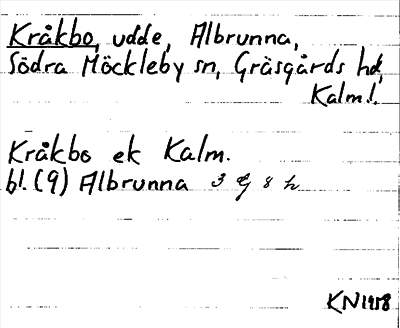 Kråkbo, udde, Albrunna,
Södra Möckleby sn, Gräsgårds hd,
Kalm.l.
Kråkbo ek Kalm.
bl. (9) Albrunna 3 g 8 h
KN 1958